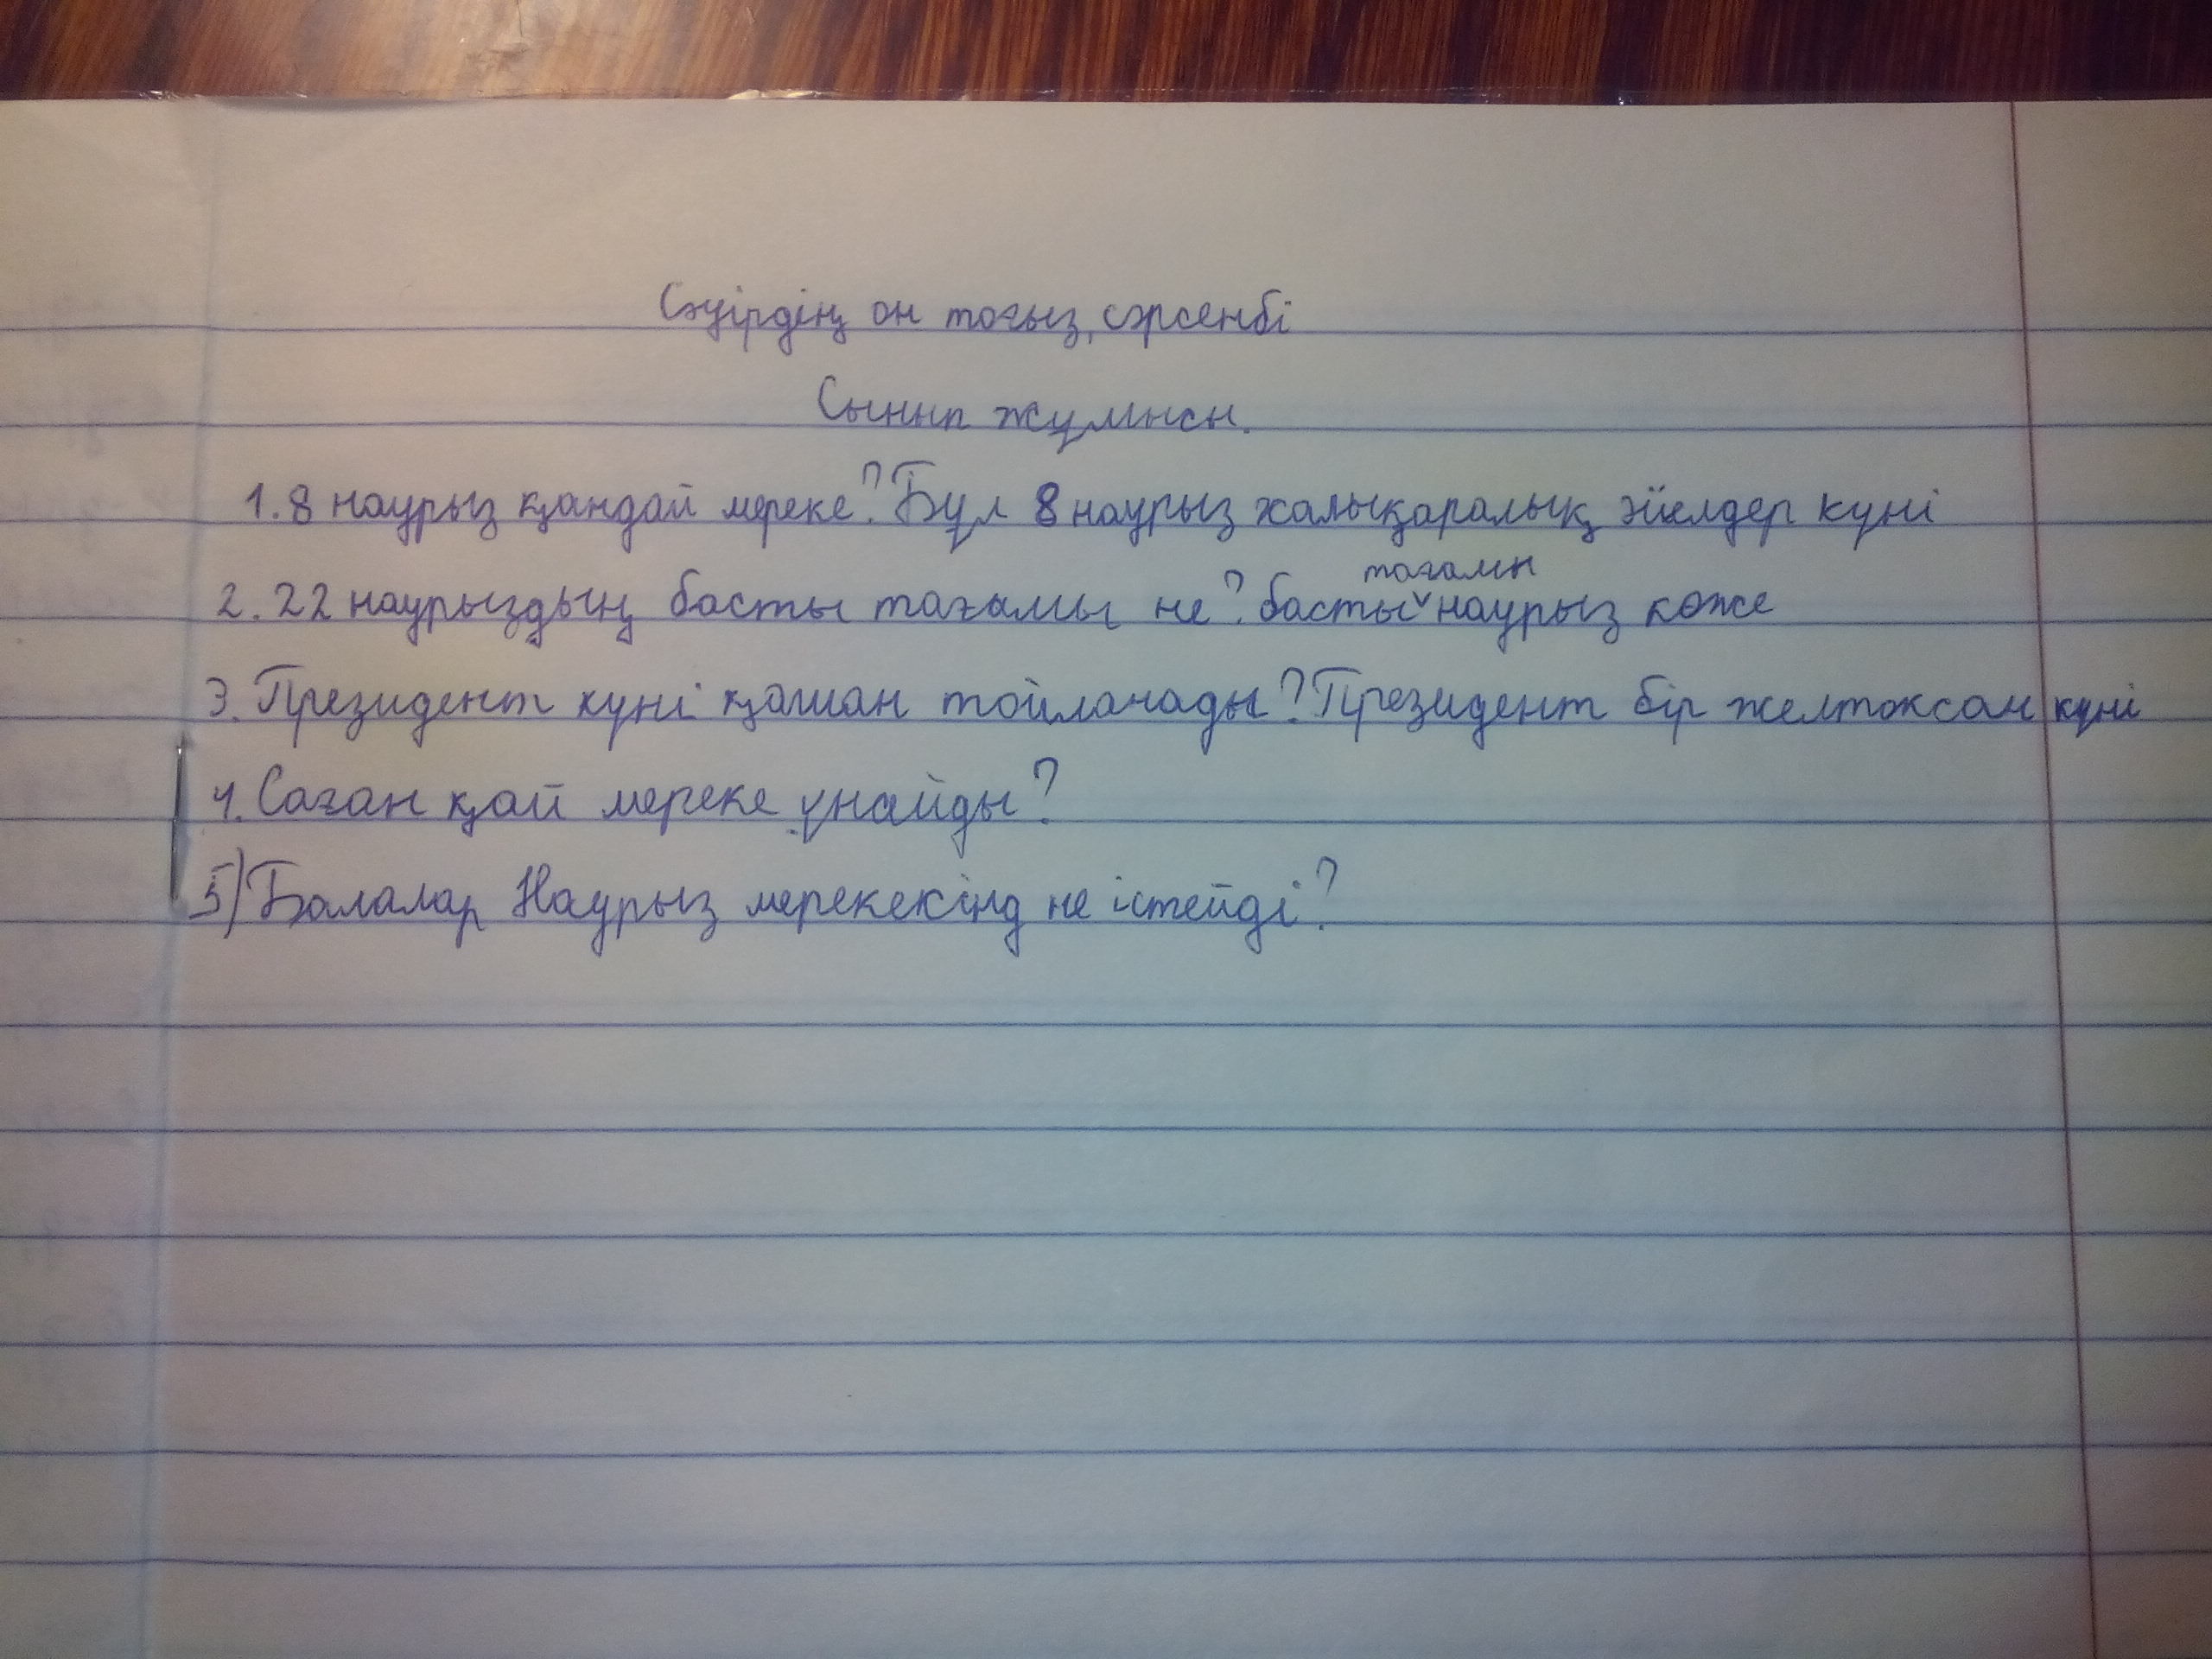 Сәуірдің он тоғыз, сәрсенбі
Сынып жұмысы.
1. 8 наурыз қандай мереке? Бұл 8 наурыз халықаралық әйелдер күні
тағамы
2. 22 наурыздың басты тағамы не? басты наурыз көже
3. Президент күні қашан тойланады? Президент бір желтоксан күні
4. Саған қай мереке ұнайды?
5) Балалар Наурыз мерекекінд не істейді?